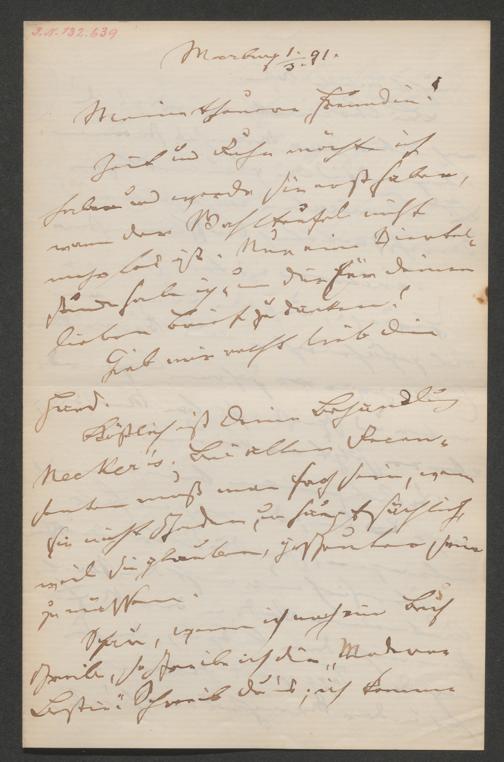 J.N. 132.639
Marburg 1./3. 91.
Meine theure Freundin!
Zeit und Ruhe möcht ich
haben und werde sie erst haben,
wann der Wahlteufel nicht
mehr los ist. Nur eine Viertel-
stunde habe ich, um dir für deinen
lieben Brief zu danken!
Gieb mir recht lieb die
Hand.
Köstlich ist deine Behandlung
Necker's. Bei allen Recen-
senten muß man froh sein, wenn
sie nicht schaden, hauptsächlich,
weil sie glauben, sein
zu müssen.
wenn ich noch ein Buch
schreibe, so schreibe ich die „Moderne
Bestie“. Schreib du's; ich komme